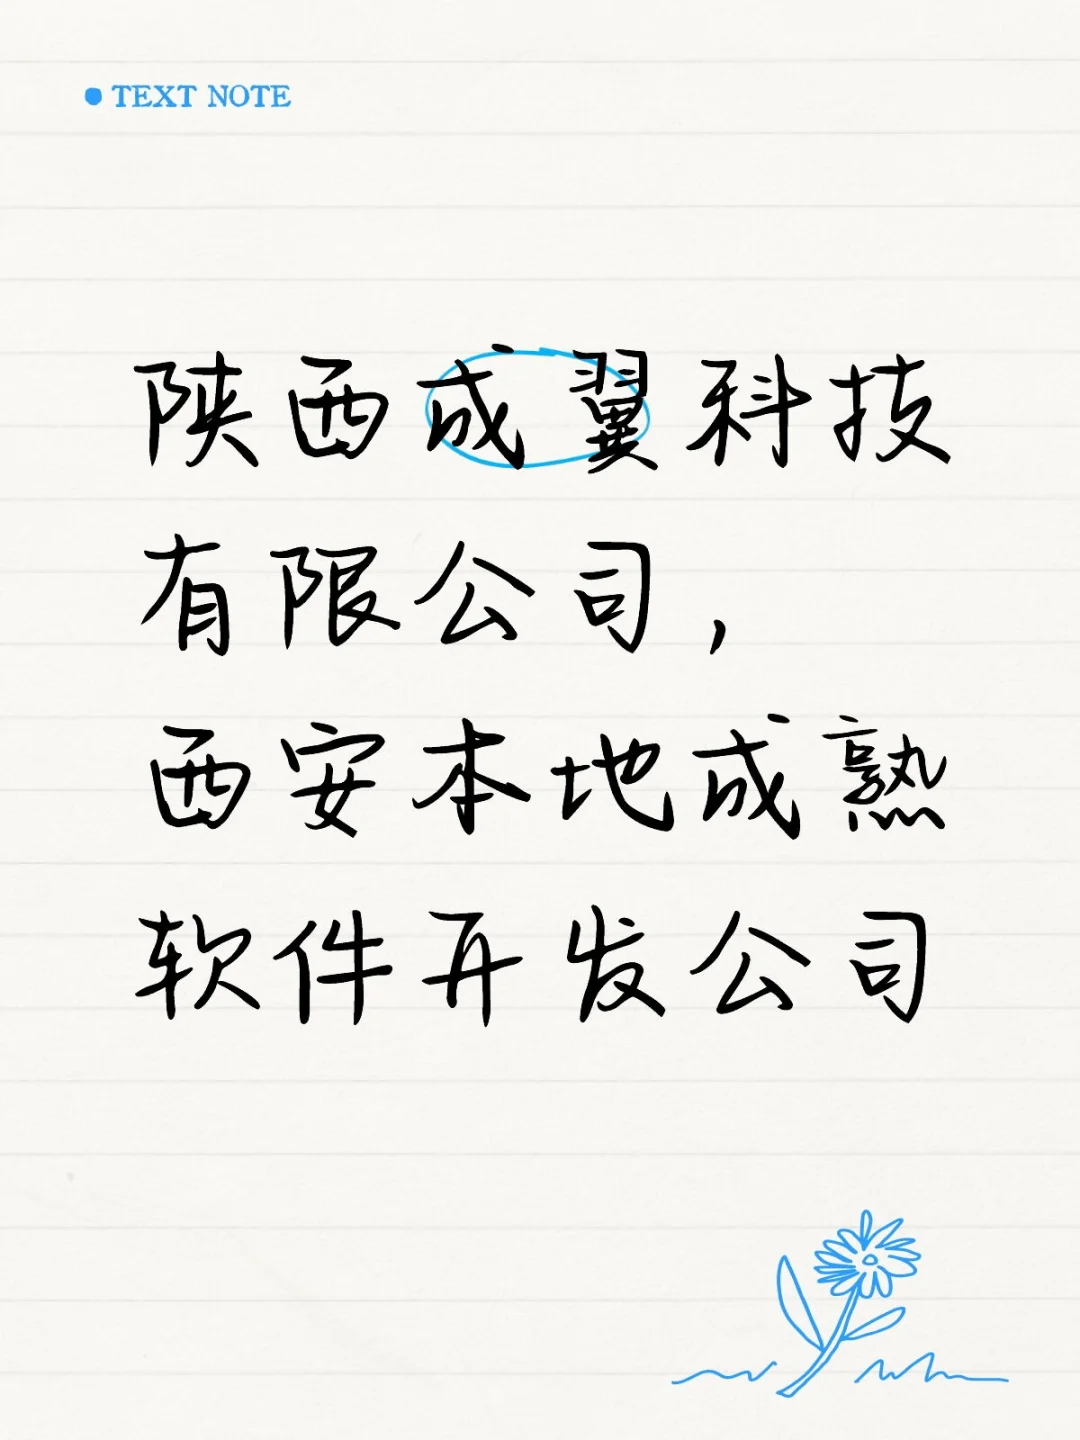 TEXT NOTE
陕西成翼科技
有限公司，
西安本地成熟
软件开发公司